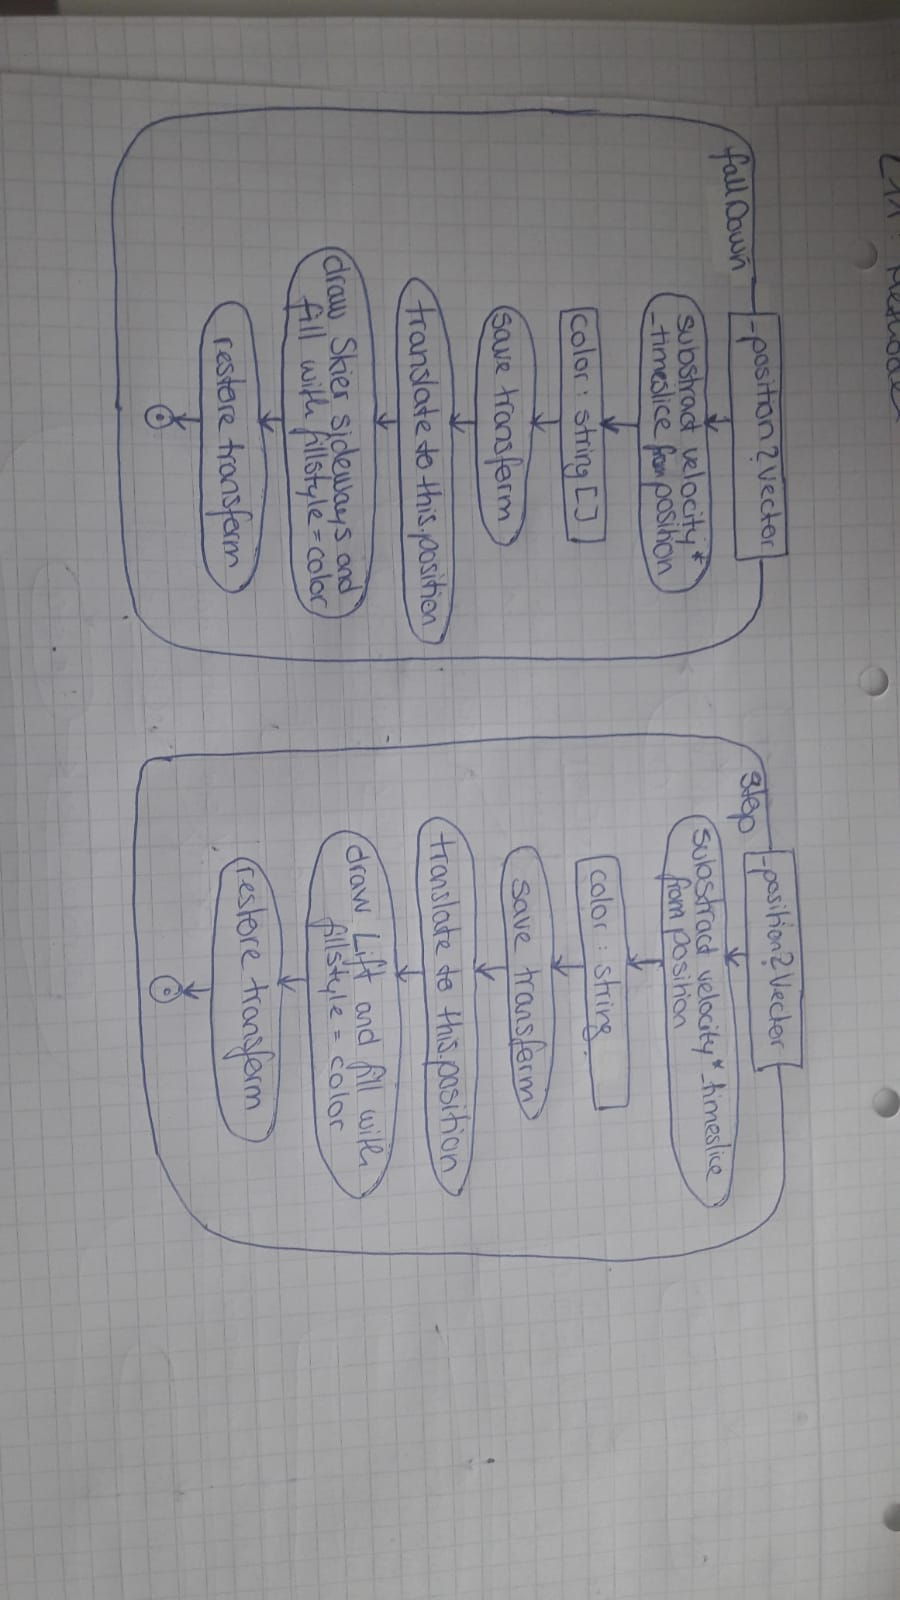 fallDown
-position?Vector
substract velocity*
_timeslice from position
color : string[]
save transform
translate to this.position
draw Skier sideways and
fill with fillstyle = color
restore transform
step
-position?Vector
substract velocity*_timeslice
from position
color : string
save transform
translate to this.position
draw Lift and fill with
fillstyle = color
restore transform